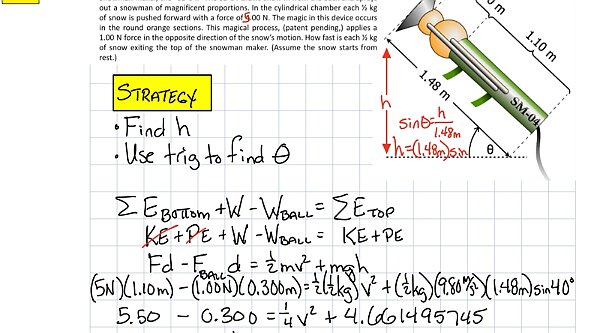 out a snowman of magnificent proportions. In the cylindrical chamber each ½ kg
of snow is pushed forward with a force of 5.00 N. The magic in this device occurs
in the round orange sections. This magical process, (patent pending,) applies a
1.00 N force in the opposite direction of the snow's motion. How fast is each ½ kg
of snow exiting the top of the snowman maker. (Assume the snow starts from
rest.)
0 m
1.10 m
1.48 m
SM-04
θ
h
sinθ=h/1.48m
h=(1.48m)sin
STRATEGY
• Find h
• Use trig to find θ
ΣE_BOTTOM + W - W_BALL = ΣE_TOP
KE + PE + W - W_BALL = KE + PE
Fd - F_BALL d = ½mv² + mgh
(5N)(1.10m) - (1.00N)(0.300m) = ½(½kg)v² + (½kg)(9.80 m/s²)(1.48m)sin40°
5.50 - 0.300 = ¼v² + 4.661495745